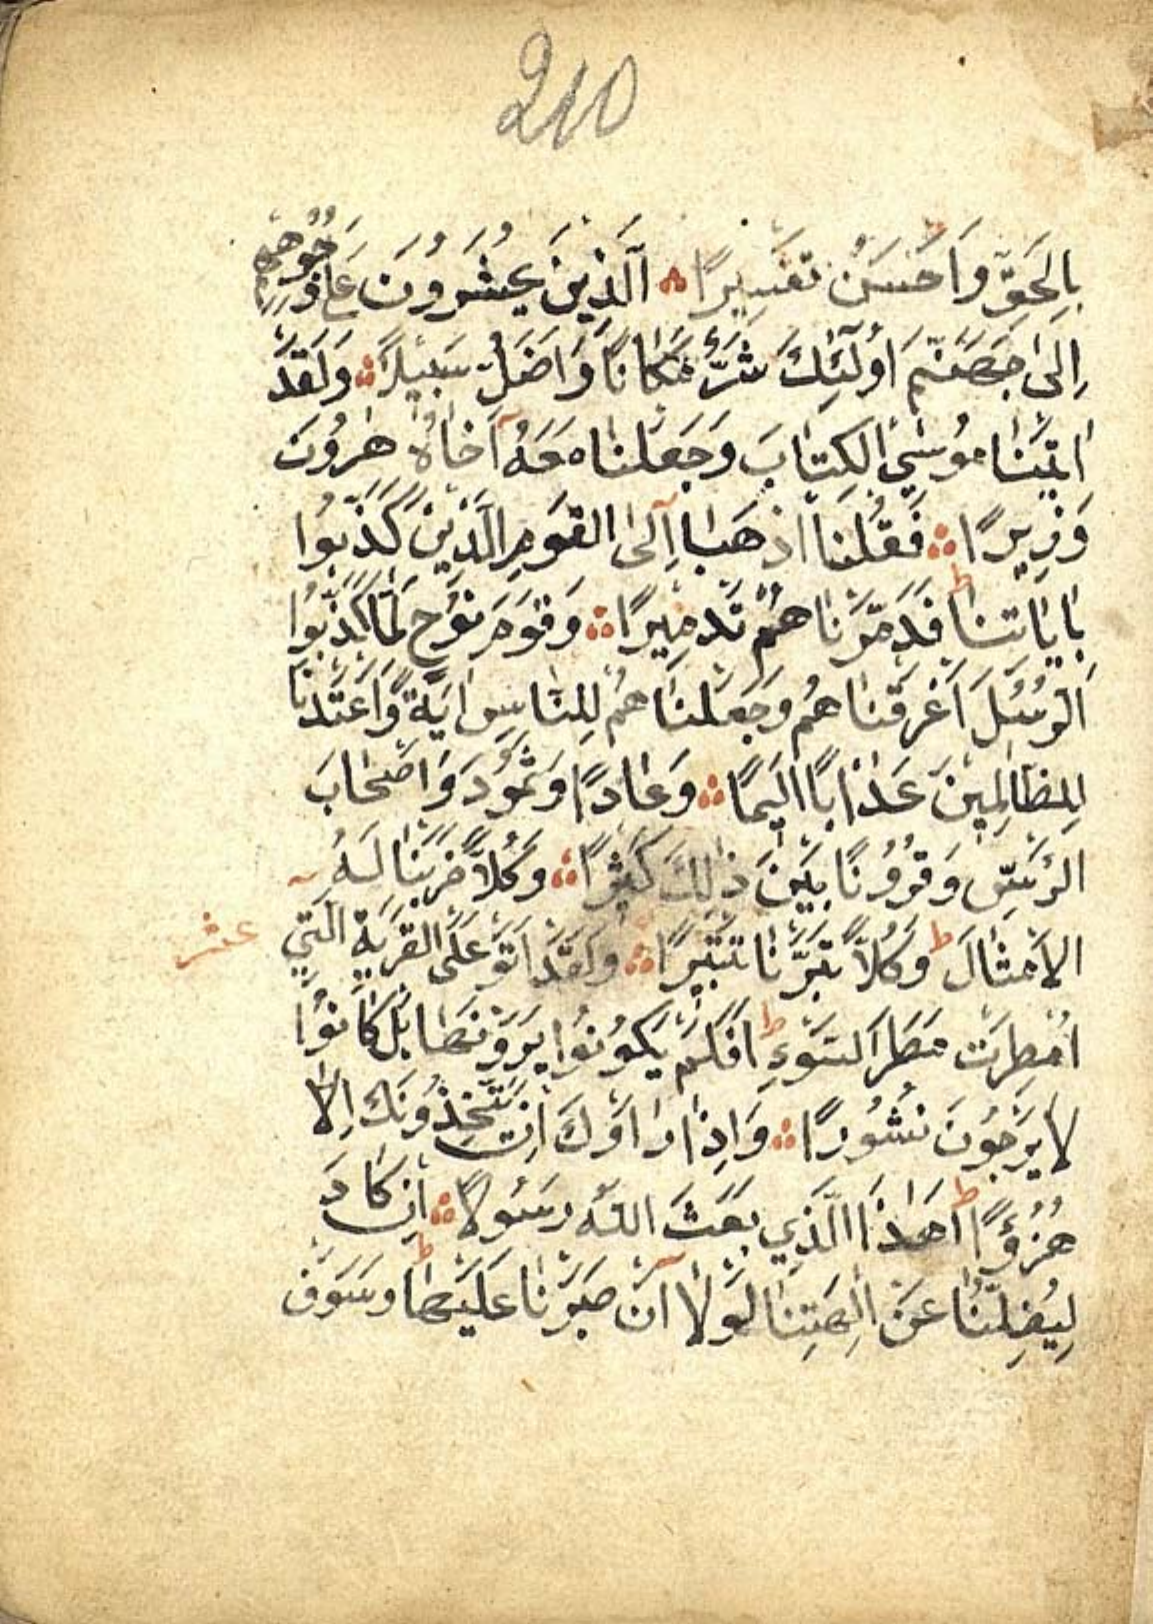 210
بِالْحَقِّ وَاَحْسَنَ تَفْسِيرًا ۞ اَلَّذِينَ يُحْشَرُونَ عَلٰى وُجُوهِهِمْ
اِلٰى جَهَنَّمَ اُولٰٓئِكَ شَرٌّ مَكَانًا وَاَضَلُّ سَبِيلًا ۞ وَلَقَدْ
اٰتَيْنَا مُوسَى الْكِتَابَ وَجَعَلْنَا مَعَهُٓ اَخَاهُ هٰرُونَ
وَزِيرًا ۞ فَقُلْنَا اذْهَبَٓا اِلَى الْقَوْمِ الَّذِينَ كَذَّبُوا
بِاٰيَاتِنَا ط فَدَمَّرْنَاهُمْ تَدْمِيرًا ۞ وَقَوْمَ نُوحٍ لَمَّا كَذَّبُوا
الرُّسُلَ اَغْرَقْنَاهُمْ وَجَعَلْنَاهُمْ لِلنَّاسِ اٰيَةً وَاَعْتَدْنَا
لِلظَّالِمِينَ عَذَابًا اَلِيمًا ۞ وَعَادًا وَثَمُودَ وَاَصْحَابَ
الرَّسِّ وَقُرُونًا بَيْنَ ذٰلِكَ كَثِيرًا ۞ وَكُلًّا ضَرَبْنَا لَهُ
الْاَمْثَالَ ط وَكُلًّا تَبَّرْنَا تَتْبِيرًا ۞ وَلَقَدْ اَتَوْا عَلَى الْقَرْيَةِ الَّتِي
عشر
اُمْطِرَتْ مَطَرَ السَّوْءِ ط اَفَلَمْ يَكُونُوا يَرَوْنَهَا بَلْ كَانُوا
لَا يَرْجُونَ نُشُورًا ۞ وَاِذَا رَاَوْكَ اِنْ يَتَّخِذُونَكَ اِلَّا
هُزُؤًا ط اَهٰذَا الَّذِي بَعَثَ اللّٰهُ رَسُولًا ۞ اِنْ كَادَ
لَيُضِلُّنَا عَنْ اٰلِهَتِنَا لَوْلَٓا اَنْ صَبَرْنَا عَلَيْهَا ط وَسَوْفَ